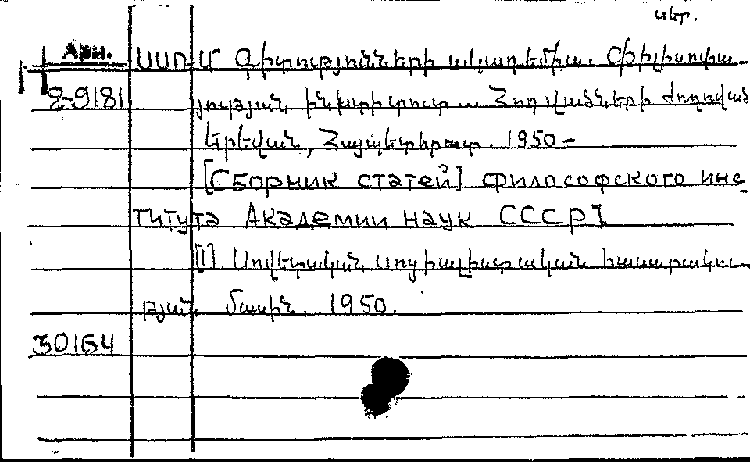 սեր.
Арм. ՍՍՌՄ Գիտությունների ակադեմիա. Փիլիսոփա-
2-9181 յության ինստիտուտ. Հոդվածների ժողոված
Երեվան, Հայպետհրատ. 1950-
[Сборник статей] философского инс
титута Академии наук СССР]
[1]. Սովետական սոցիալիստական հասարակու-
թյան մասին. 1950.
30164